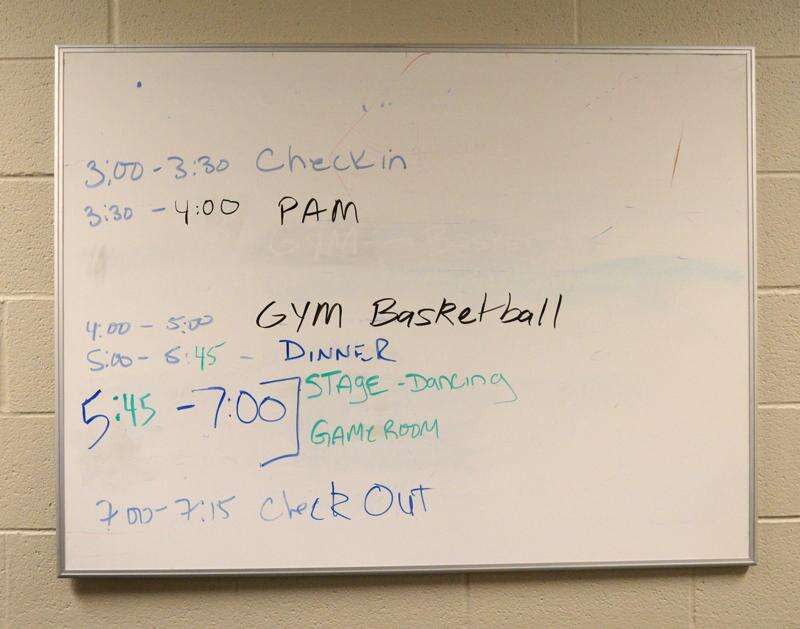 3:00 - 3:30 Check in
3:30 - 4:00 PAM
4:00 - 5:00 GYM Basketball
5:00 - 5:45 - DINNER
5:45 - 7:00] STAGE - Dancing
GAME ROOM
7:00 - 7:15 Check Out